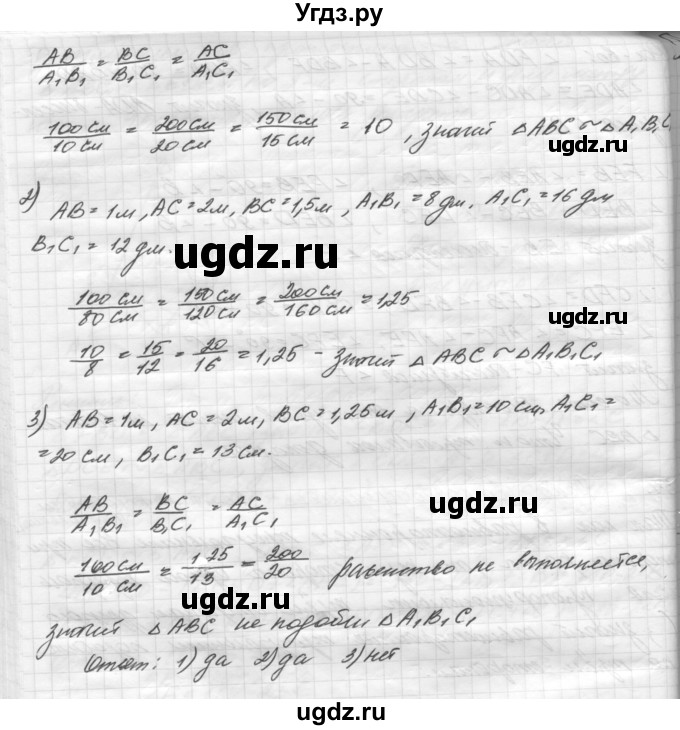 Угдз.ру
AB/A₁B₁ = BC/B₁C₁ = AC/A₁C₁
100 см/10 см = 200 см/20 см = 150 см/15 см = 10, значит △ABC ~ △A₁B₁C₁
ugdz.ru
2) AB = 1м, AC = 2м, BC = 1,5м, A₁B₁ = 8 дм, A₁C₁ = 16 дм
B₁C₁ = 12 дм.
ugdz.ru
100 см/80 см = 150 см/120 см = 200 см/160 см = 1,25
ugdz.ru
10/8 = 15/12 = 20/16 = 1,25 - значит △ABC ~ △A₁B₁C₁
3) AB = 1м, AC = 2м, BC = 1,25м, A₁B₁ = 10 см, A₁C₁ =
= 20 см, B₁C₁ = 13 см.
ugdz.ru
AB/A₁B₁ = BC/B₁C₁ = AC/A₁C₁
ugdz.ru
100 см/10 см = 125/13 = 200/20 равенство не выполняется,
ugdz.ru
значит △ABC не подобен △A₁B₁C₁
Ответ: 1) да 2) да 3) нет
ugdz.ru
ugdz.ru